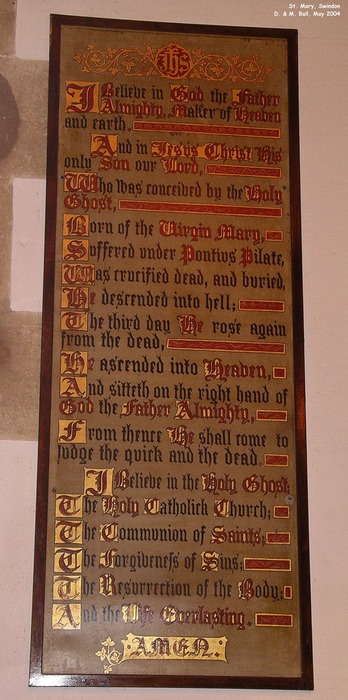 St. Mary, Swindon
D. & M. Ball, May 2004
IHS
I Believe in God the Father
Almighty, Maker of Heaven
and earth.
And in Jesus Christ His
only Son our Lord,
Who Was conceived by the Holy
Ghost,
Born of the Virgin Mary,
Suffered vnder Pontivs Pilate,
Was crucified dead, and buried,
He descended into hell;
The third day He rose again
from the dead,
He ascended into Heaven,
And sitteth on the right hand of
God the Father Almighty,
From thence He shall come to
judge the quick and the dead.
I Believe in the Holy Ghost
The Holy Catholick Church;
The Communion of Saints;
The Forgiveneſs of Sins;
The Resurrection of the Body;
And the Life Everlasting.
AMEN.